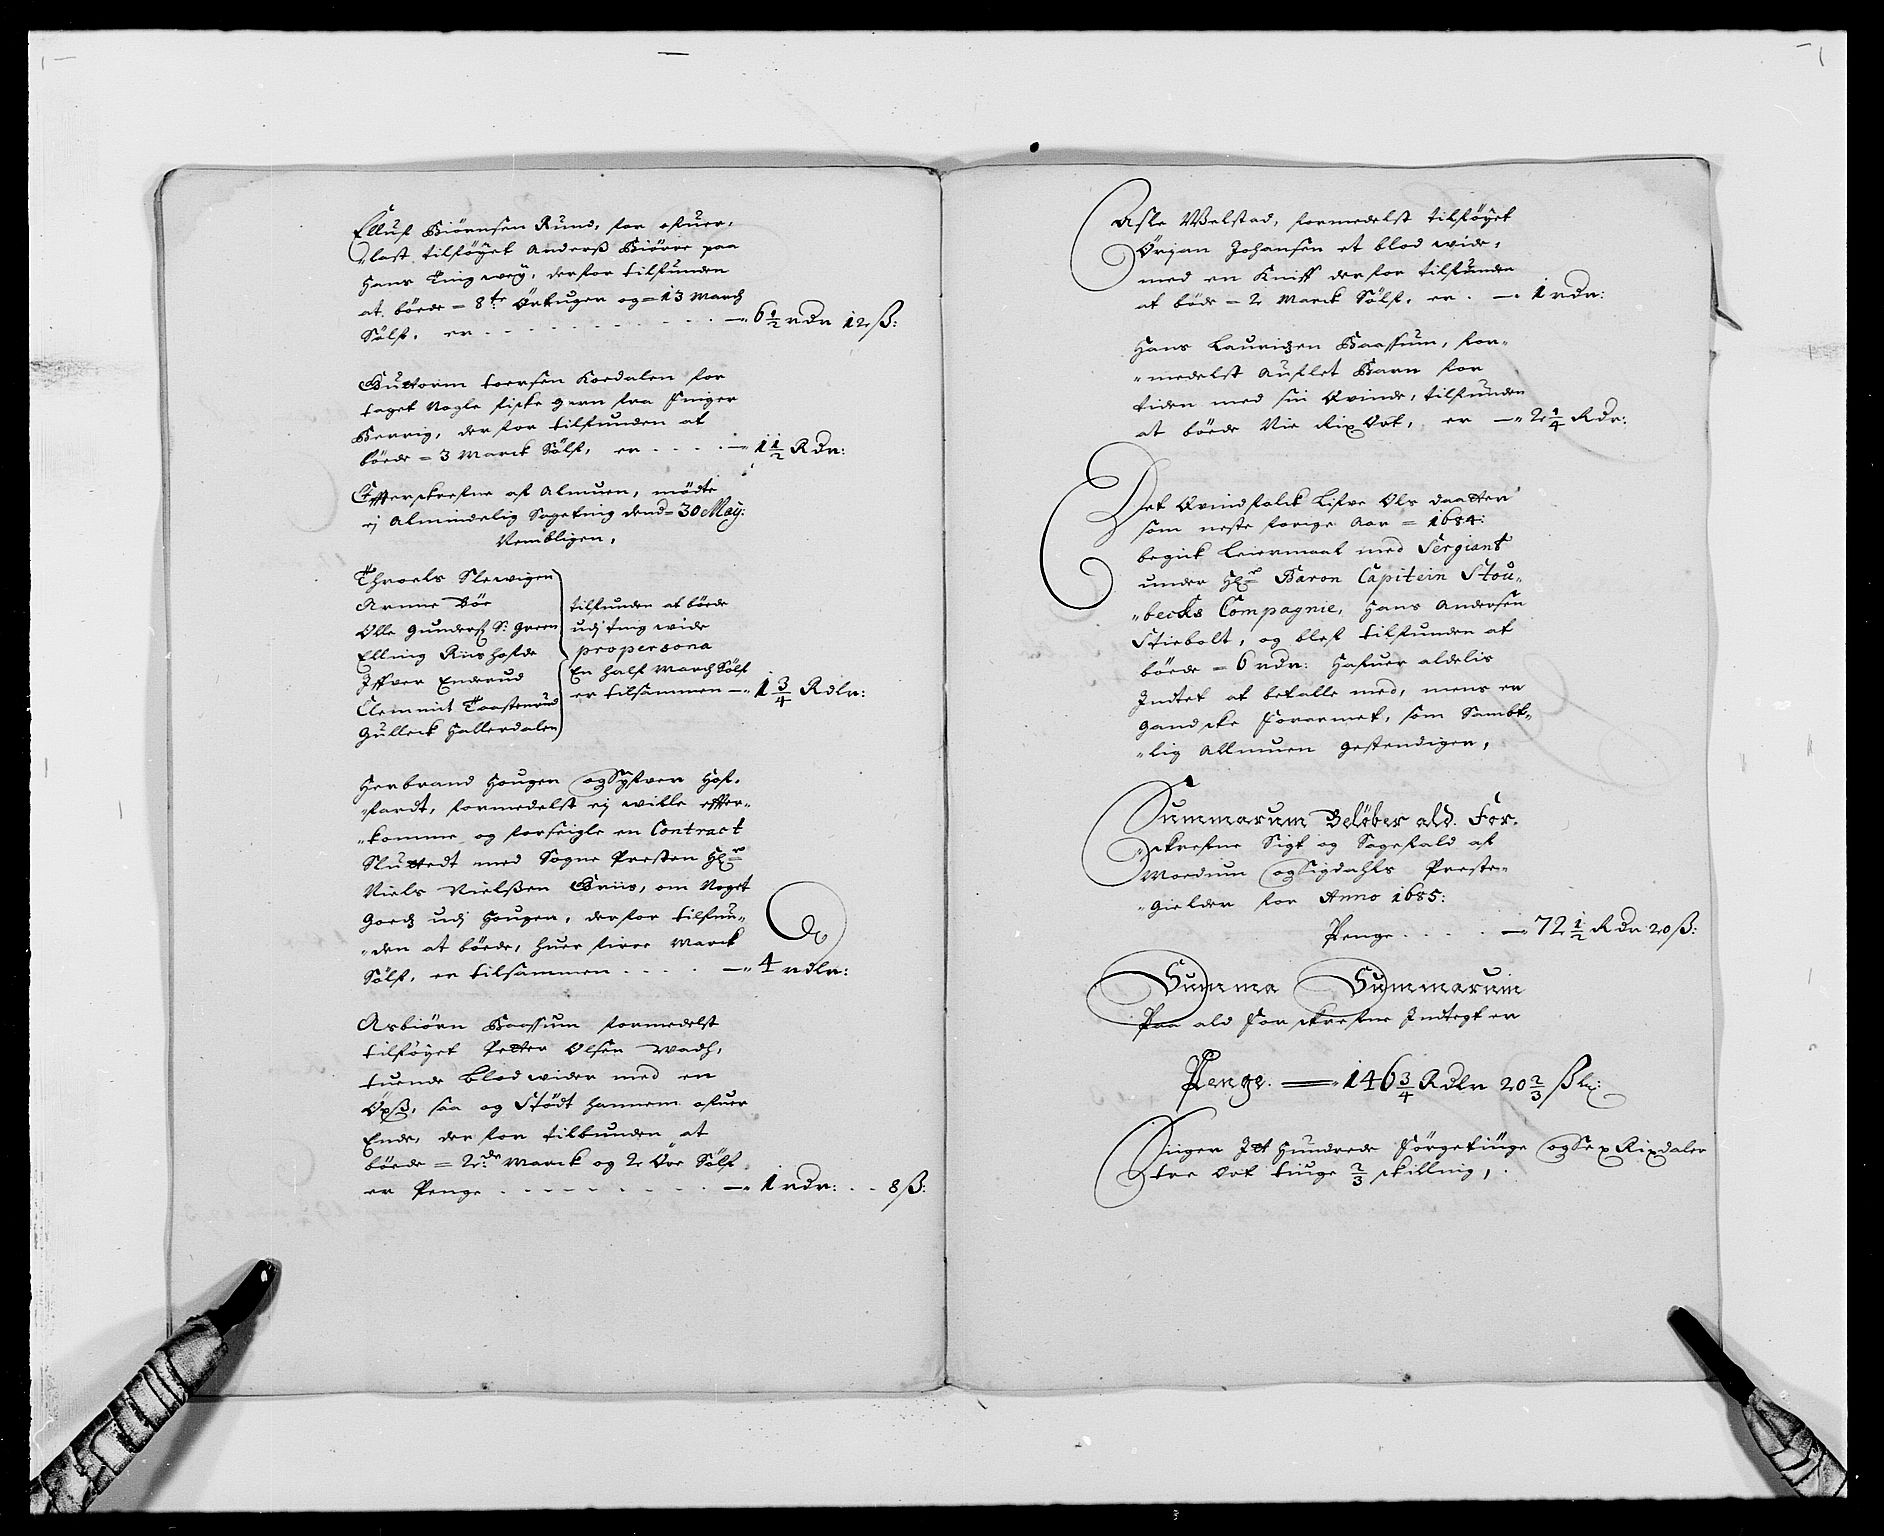 Elluf Biörnsen Rund, for ofuer„
„last tilföÿet Anderß Biörre paa
Hans Tingweÿ, derfor tilfunden
at böede = 8te Örtuger og = 13 March
Sölf, er - - - - - - —„ 6½ rdr 12 ß:
Guttorm toersen Kordalen for
taget Nogle fiske gern fra Sniger
Berrig, der for tilfunden at
böede = 3 Marck Sölf, er . . . . —„ 1½ Rdr:
Effterskrefne af Almuen, mödte
ej Almindelig Sageting dend = 30 Maÿ:
Nembligen,
Throels Slewigen
Arnne Böe
Olle Gunders: S: Green
Elling Riishofde
Iffver Enderud
Clemmit Taasterud
Gulleck Hallerdalen
tilfunden at böede
udj ting wide
pro persona
En half March Sölf
er tilsammen —„ 1¾ Rdlr:
Herbrand Hougen og Syfver Hof„
„fardt, formedelst ej wille effter„
„komme og forseigle en Contract
Sluttedt med Sogne Presten Hr
Niels Nielßen Briis, om Noget
Goedz udj Hougen, derfor tilfun„
„den at böede, huer fire Marck
Sölf, er tilsammen . . . . —„ 4 rdlr:
Asbiörn Baassum formedelst
tilföÿet Petter Olsen Wadh,
tuende blod wider med en
Öxß, saa og Stödt hannem ofuer
Ende, der for tilbunden at
böede = 2de Marck og 2 Öre Sölf
er Penge . . . . . . —„ 1 rdr: . . 8 ß:
Asle Welstad, formedelst tilföÿet
Örjan Johansen et blod wide,
med en Kniff der for tilfunden
at böde = 2 Marck Sölf, er . —„ 1 rdr:
Hans Lauridzen Baassum, for„
„medelst Auflet Barn for
tiden med sin Qvinde, tilfunden
at böede Nie Rix Ort, er —„ 2¼ Rdr:
Det Qvindfolck Lisve Ols daatter
som neste forige Aar = 1684:
begick Leiermaal med Sergiant
under Hr Baron Capitein Stou„
„becks Compagnie, Hans Andersen
Stiebolt, og blef tilfunden at
böede = 6 rdr: Hafuer aldelis
Indtet at betalle med, mens er
Gandske Forarmet, som Sambt„
„lig Allmuen gestendiger,
Summarum Belöber ald For„
„skrefne Sigt og Sagefald af
Moedum og Sigdahls Preste„
„gielder for Anno 1685:
Penge . . . . —„ 72½ Rdr 20 ß:
Summa Summarum
Paa ald For skrefne Indtegt er
Penge. —„ 146¾ Rdlr 20⅔ ßl:
Siiger Itt Hundrede Förgetiuge og Sex Rixdaler
tre Ort tiuge ⅔ skilling,